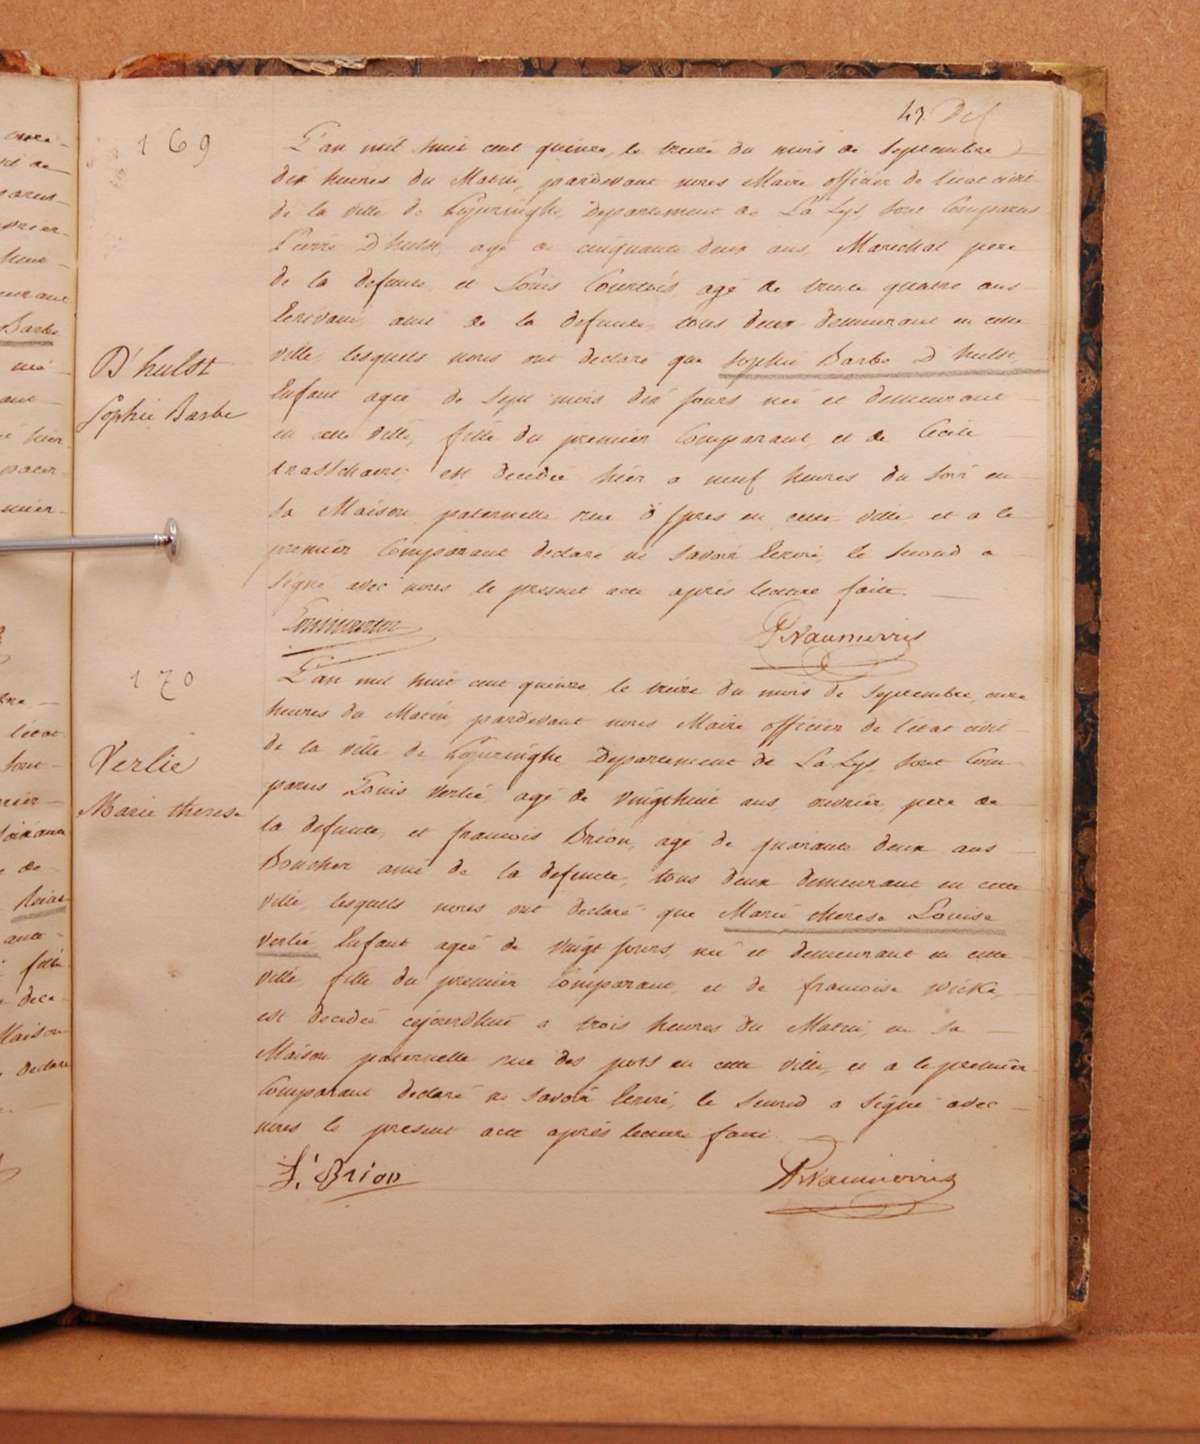 47. Def
169
L'an mil huit cent quinze, le treize du mois de Septembre
dix heures du Matin, pardevant nous Maire officier de l'etat civil
de la ville de Poperinghe Departement de La Lys sont Comparus
Pierre D hulst agé de cinquante deux ans, Marechal pere
de la defunte, et Louis Courtois agé de trente quatre ans
Ecrivain, ami de la defunte, tous deux demeurant en cette
ville lesquels nous ont declaré que Sophie Barbe D hulst
Enfant agée de Sept mois dix jours née et demeurant
en cette ville, fille du premier Comparant, et de Cecile
est decedée hier a neuf heures du soir en
sa Maison paternelle rue d Ypres en cette ville et a le
premier Comparant declaré ne savoir Ecrire, le second a
signé avec nous le present acte après lecture faite.
D'hulst
Sophie Barbe
170
L'an mil huit cent quinze le treize du mois de Septembre, onze
heures du Matin pardevant nous Maire officier de l'etat civil
de la ville de Poperinghe Departement de La Lys sont Com
parus Louis Verlie agé de vingthuit ans ouvrier pere de
la defunte, et francois Brion, agé de quarante deux ans
Boucher ami de la defunte, tous deux demeurant en cette
ville, lesquels nous ont declaré que Marie therese Louise
Verlie Enfant agée de vingt jours, née et demeurant en cette
ville, fille du premier Comparant, et de francoise Wicke,
est decedée cejourdhui a trois heures du Matin, en sa
Maison paternelle rue des pots en cette ville, et a le premier
Comparant declaré ne savoir Ecrire, le second a signé avec
nous le present acte après lecture faite
Verlie
Marie therese
f. Brion